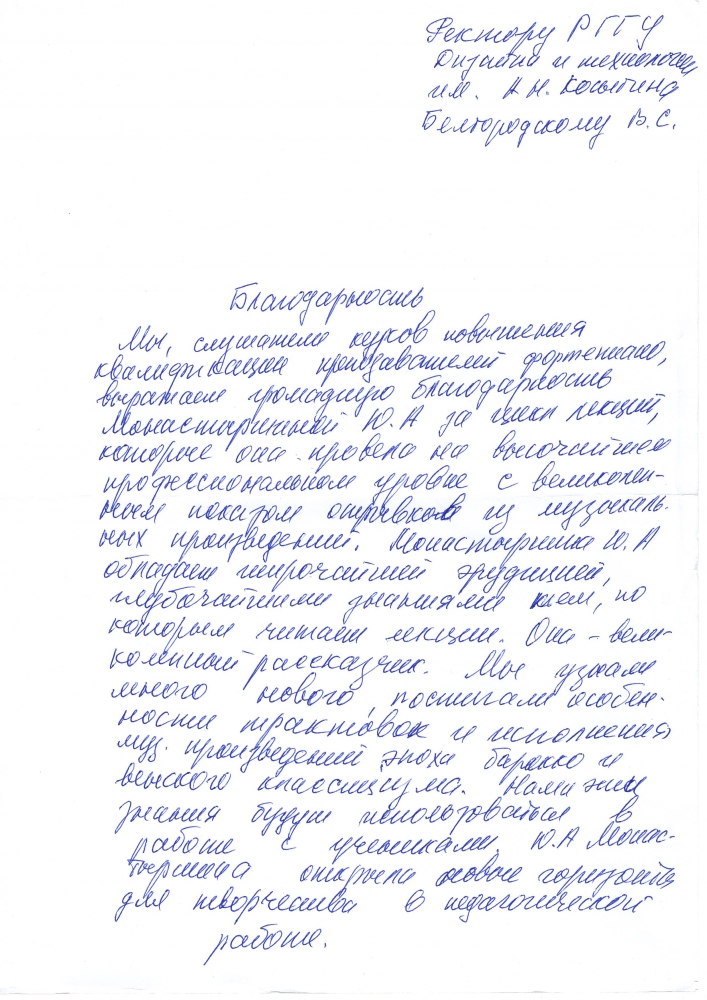 Ректору РГГУ
Дизайна и технологии
им. А Н. Косыгина
Белгородскому В.С.
Благодарность
Мы, слушатели курсов повышения
квалификации преподавателей фортепиано,
выражаем громадную благодарность
Монастыршиной Ю.А за цикл лекций,
которые она провела на высочайшем
профессиональном уровне с великолеп-
ным показом отрывков из музыкаль-
ных произведений. Монастыршина Ю.А
обладает широчайшей эрудицией,
глубочайшими знаниями тем, по
которым читает лекции. Она - вели-
колепный рассказчик. Мы узнали
много нового, постигали особен-
ности трактовок и исполнения
муз. произведений эпохи барокко и
венского классицизма. Нами эти
знания будут использоваться в
работе с учениками. Ю.А Монас-
тыршина открыла новые горизонты
для творчества в педагогической
работе.